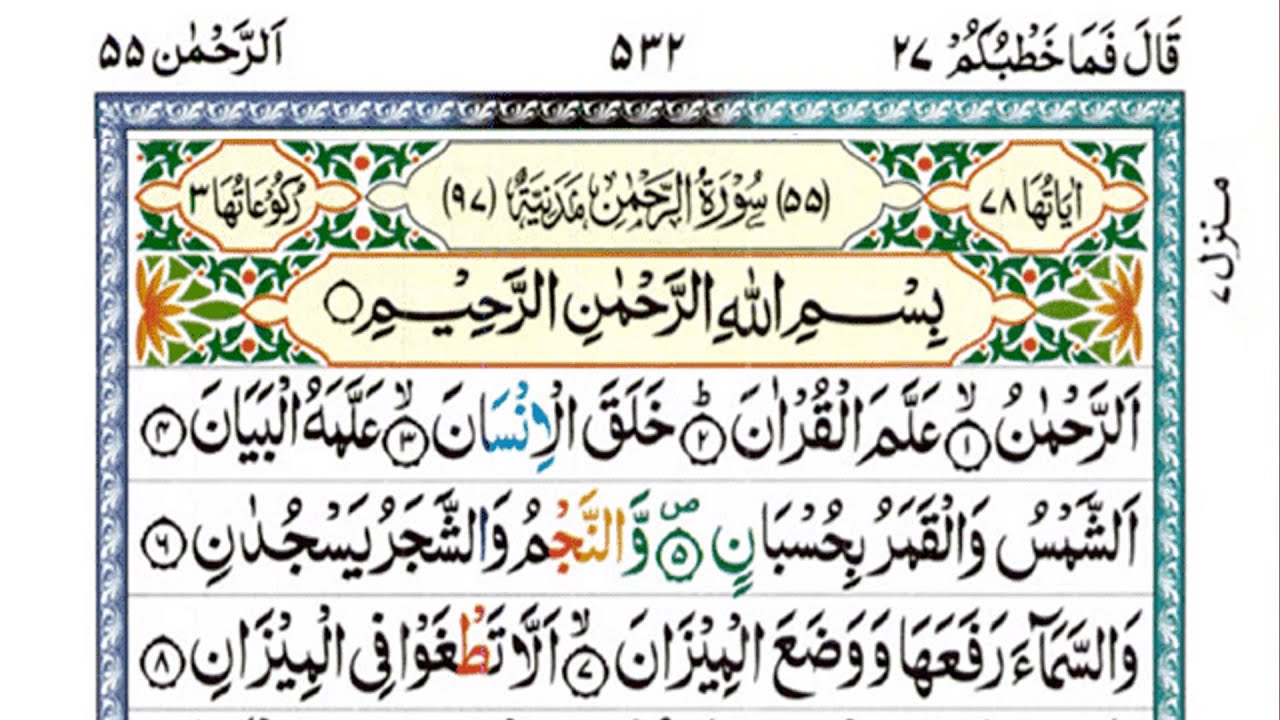 قَالَ فَمَا خَطْبُكُمْ ٢٧ ٥٣٢ اَلرَّحْمٰن ٥٥
اٰيَاتُهَا ٧٨ (٥٥) سُوْرَةُ الرَّحْمٰنِ مَدَنِيَّةٌ (٩٧) رُكُوْعَاتُهَا ٣
بِسْمِ اللّٰهِ الرَّحْمٰنِ الرَّحِيْمِ ۝
اَلرَّحْمٰنُ ۙ﴿١﴾ عَلَّمَ الْقُرْاٰنَ ؕ﴿٢﴾ خَلَقَ الْاِنْسَانَ ۙ﴿٣﴾ عَلَّمَهُ الْبَيَانَ ﴿٤﴾
اَلشَّمْسُ وَالْقَمَرُ بِحُسْبَانٍ ۪﴿٥﴾ وَّالنَّجْمُ وَالشَّجَرُ يَسْجُدٰنِ ﴿٦﴾
وَالسَّمَآءَ رَفَعَهَا وَوَضَعَ الْمِيْزَانَ ۙ﴿٧﴾ اَلَّا تَطْغَوْا فِي الْمِيْزَانِ ﴿٨﴾
منزل ٧